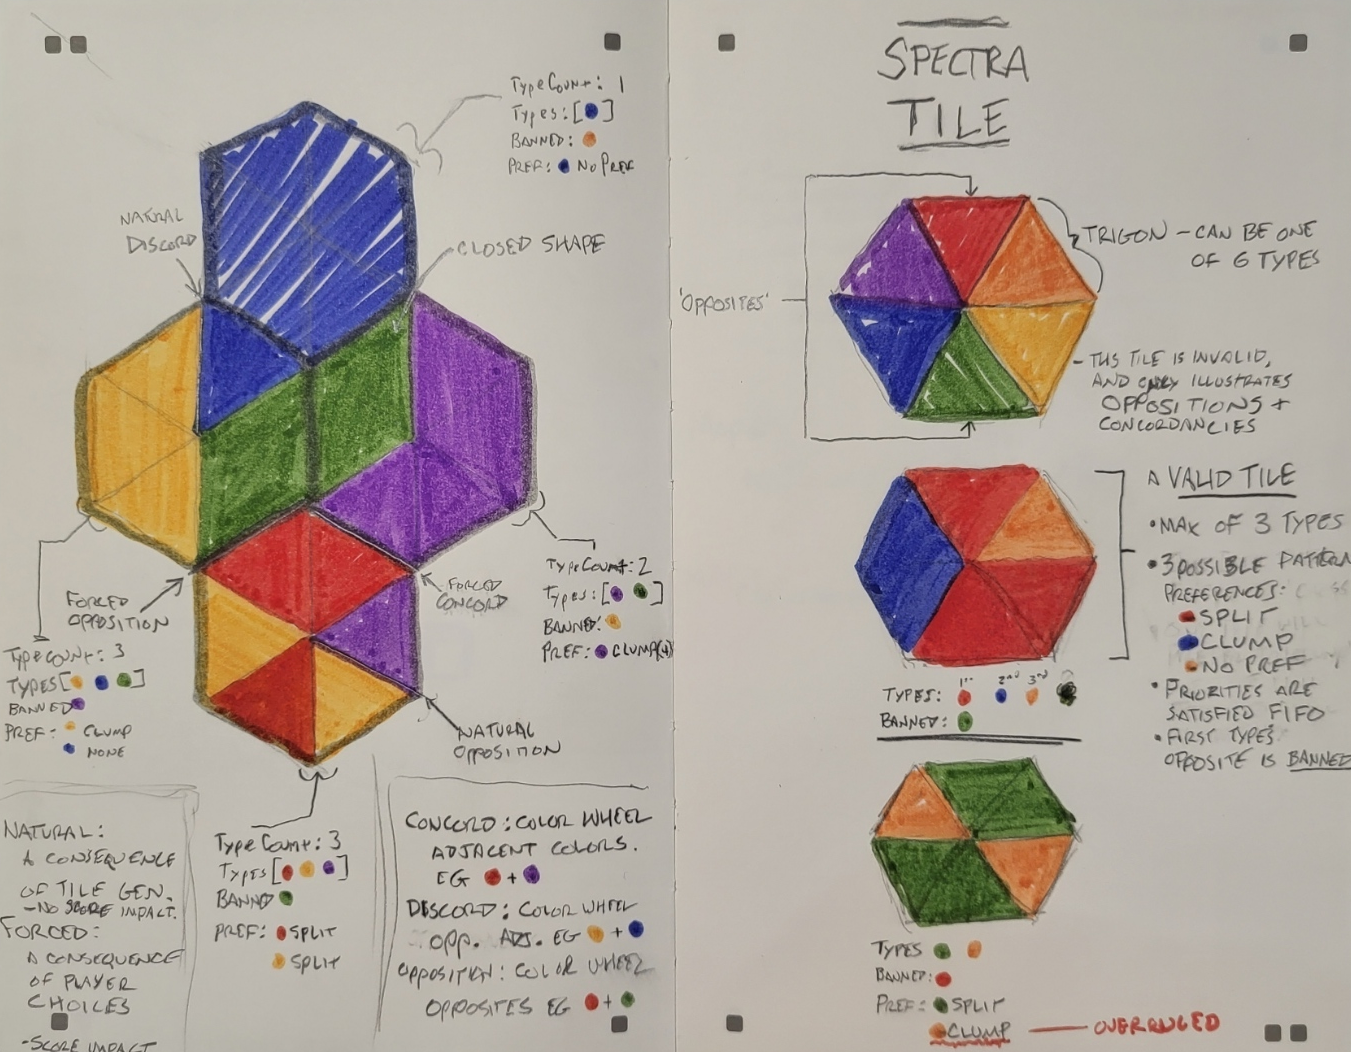 TypeCount: 1
Types: [ ]
BANNED:
PREF: NO PREF
NATURAL
DISCORD
CLOSED SHAPE
FORCED
OPPOSITION
FORCED
CONCORD
TypeCount: 2
Types: [ ]
BANNED:
PREF: CLUMP(4)
TypeCount: 3
TYPES[ ]
BANNED
PREF: CLUMP
NONE
NATURAL
OPPOSITION
NATURAL:
A CONSEQUENCE
OF TILE GEN.
-NO SCORE IMPACT.
FORCED:
A CONSEQUENCE
OF PLAYER
CHOICES
-SCORE IMPACT
TypeCount: 3
TYPES[ ]
BANND
PREF: SPLIT
SPLIT
CONCORD: COLOR WHEEL
ADJACENT COLORS.
EG +
DISCORD: COLOR WHEEL
OPP. ADJ. EG +
OPPOSITION: COLOR WHEEL
OPPOSITES EG +
SPECTRA
TILE
'OPPOSITES'
TRIGON - CAN BE ONE
OF 6 TYPES
- THIS TILE IS INVALID,
AND ONLY ILLUSTRATES
OPPOSITIONS +
CONCORDANCIES
A VALID TILE
• MAX OF 3 TYPES
• 3 POSSIBLE PATTERN
PREFERENCES:
SPLIT
CLUMP
NO PREF
• PRIORITIES ARE
SATISFIED FIFO
• FIRST TYPES
OPPOSITE IS BANNED
1st 2nd 3rd
TYPES:
BANNED:
TYPES
BANNED:
PREF: SPLIT
CLUMP — OVERRULED